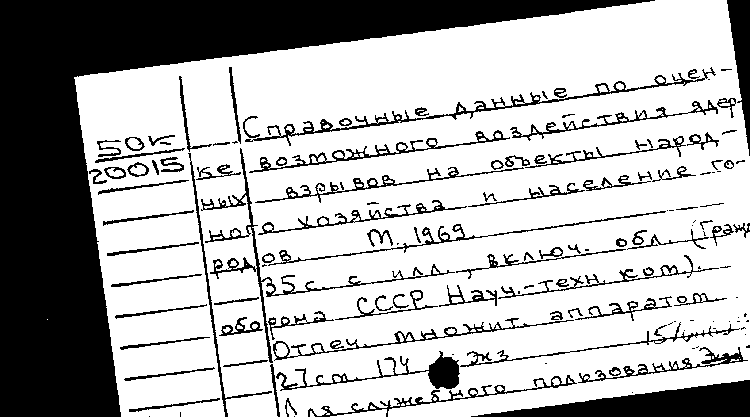 50К
20015
Справочные данные по оцен-
ке возможного воздействия ядер-
ных взрывов на объекты народ-
ного хозяйства и население го-
родов. М., 1969.
35 с. с илл., включ. обл. (Гражд.
оборона СССР. Науч.-техн. ком.).
Отпеч. множит. аппаратом.
27 см. 174 экз
Для служебного пользования.